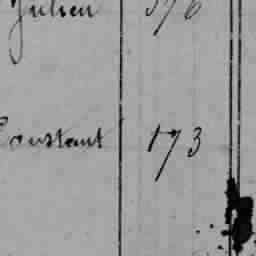 Julien 376
Constant 173